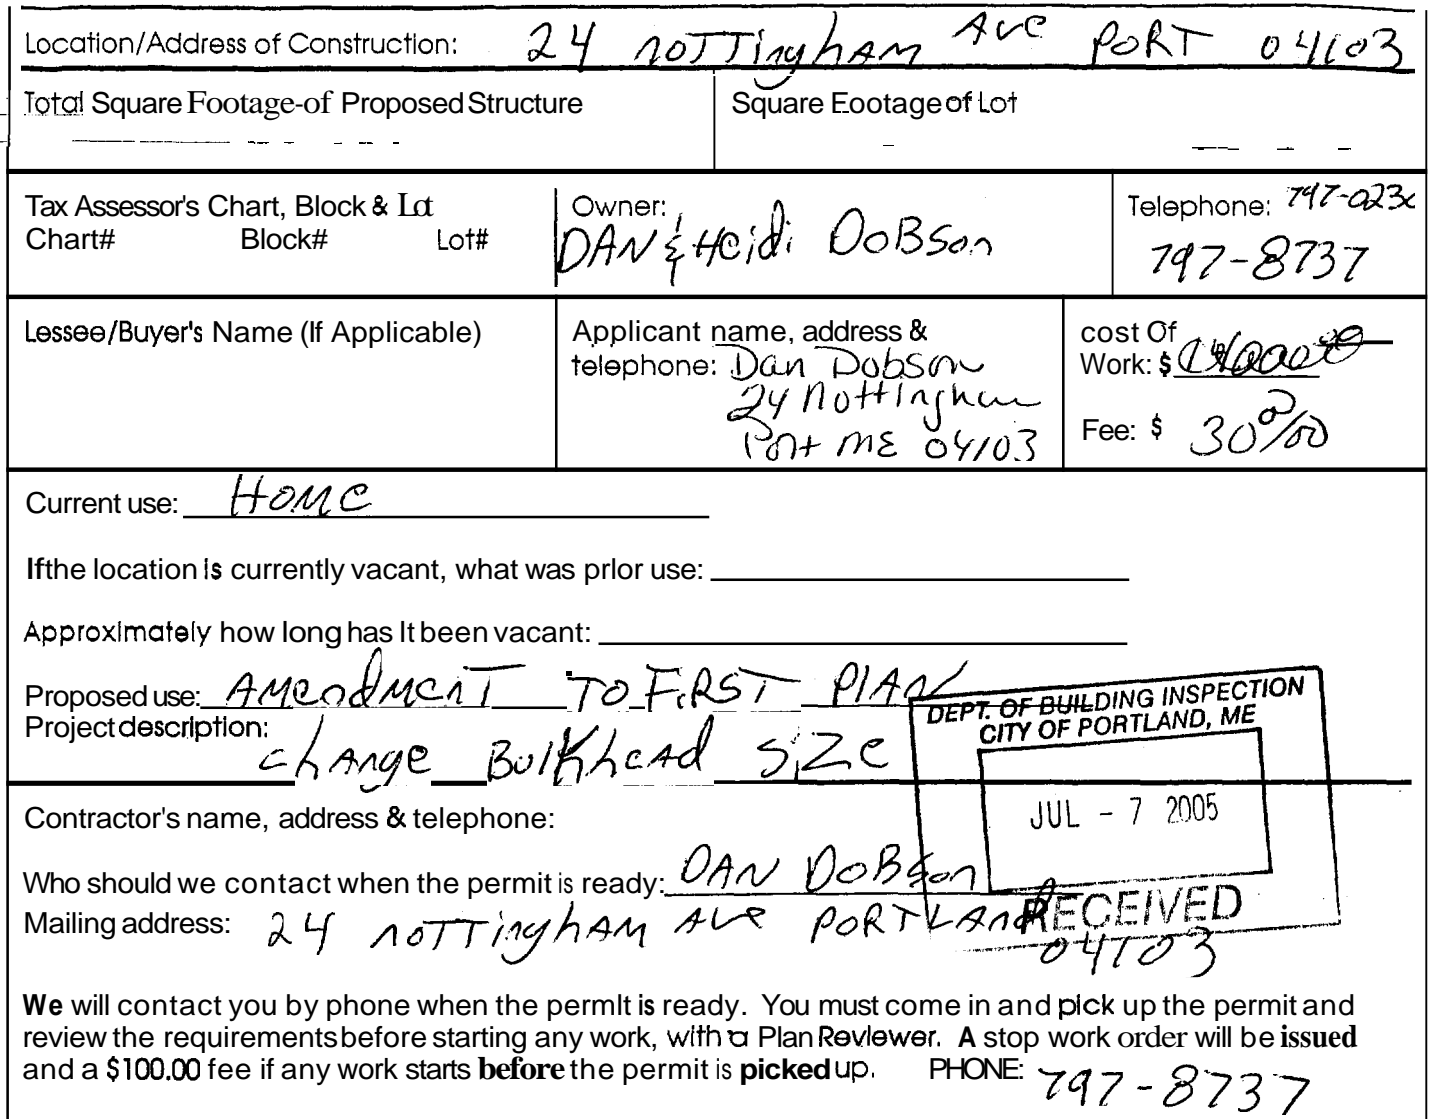 Location/Address of Construction: 24 Nottingham Ave Port 04103
Total Square Footage-of Proposed Structure Square Eootage of Lot
Tax Assessor's Chart, Block & Lot Owner: Telephone: 797-023
Chart# Block# Lot# Dan & Heidi Dobson 797-8737
Lessee/Buyer's Name (If Applicable) Applicant name, address & cost Of
telephone: Dan Dobson Work: $
24 Nottingham
Port ME 04103 Fee: $ 30 00/00
Current use: Home
If the location is currently vacant, what was prior use:
Approximately how long has It been vacant:
Proposed use: Amendment To First Plan
Project description:
change Bulkhead Size
DEPT. OF BUILDING INSPECTION
CITY OF PORTLAND, ME
JUL - 7 2005
RECEIVED
Contractor's name, address & telephone:
Who should we contact when the permit is ready: Dan Dobson
Mailing address: 24 Nottingham Ave Portland
04103
We will contact you by phone when the permit is ready. You must come in and pick up the permit and
review the requirements before starting any work, with a Plan Reviewer. A stop work order will be issued
and a $100.00 fee if any work starts before the permit is picked up. PHONE: 797-8737